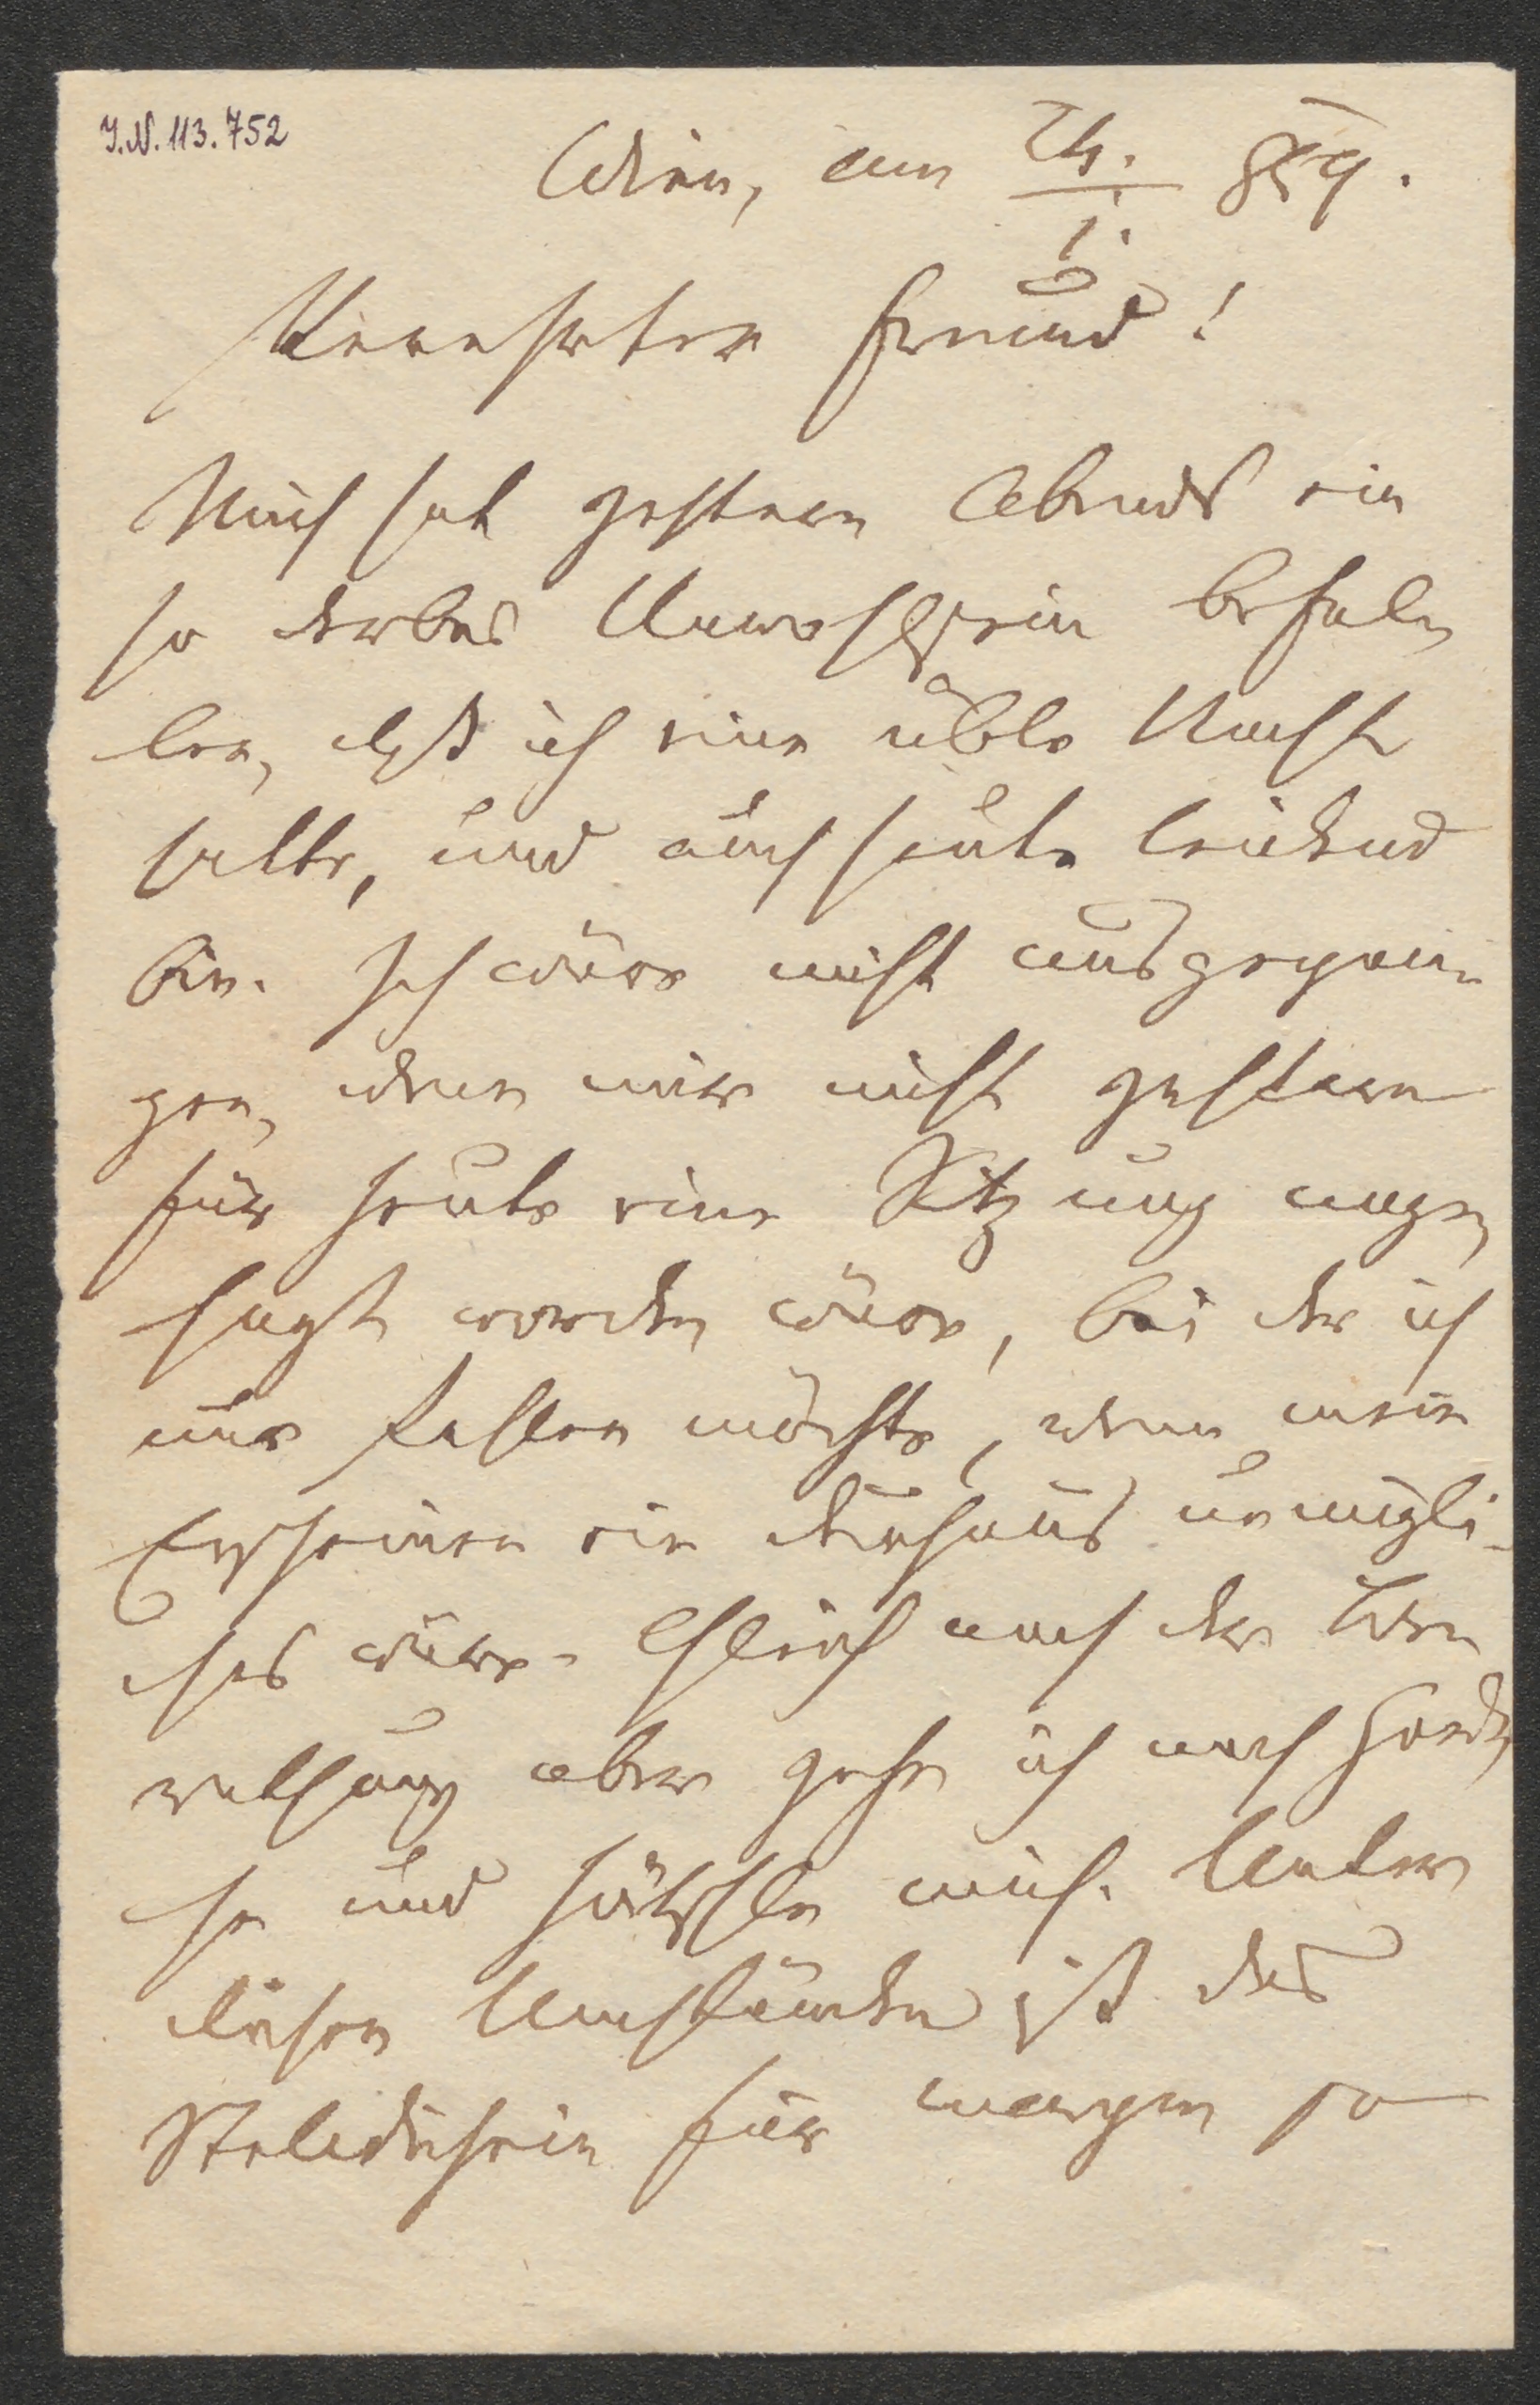 J.N. 113.752
Wien, am 24./1. 859.
Verehrter Freund!
Mich hat gestern Abends ein
so derbes Unwohlsein befal-
len, daß ich eine üble Nacht
hatte, und auch heute leidend
bin. Ich wäre nicht ausgegan-
gen, wenn mir nicht gestern
für heute eine Sitzung ange-
sagt worden wäre, bei der ich
nur fehlen möchte, wenn mein
Erscheinen ein durchaus unmögli-
ches wäre. Gleich nach der
aber gehe ich nach Hause
und hätschle mich. Unter
diesen Umständen ist das
Stelldichein für morgen so